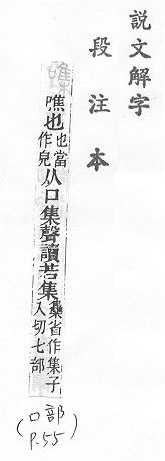 說文解字
段注本
噍也也當作皃从口集聲讀若集雧省作集子入切七部
(口部
P.55)